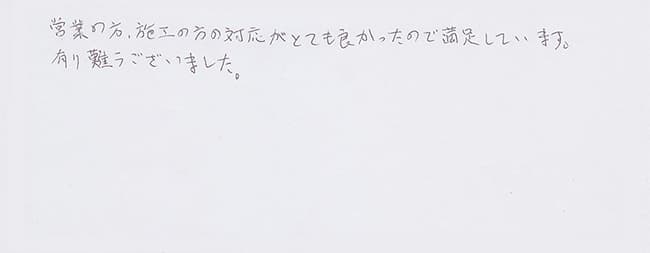 営業の方、施工の方の対応がとても良かったので満足しています。
有り難うございました。